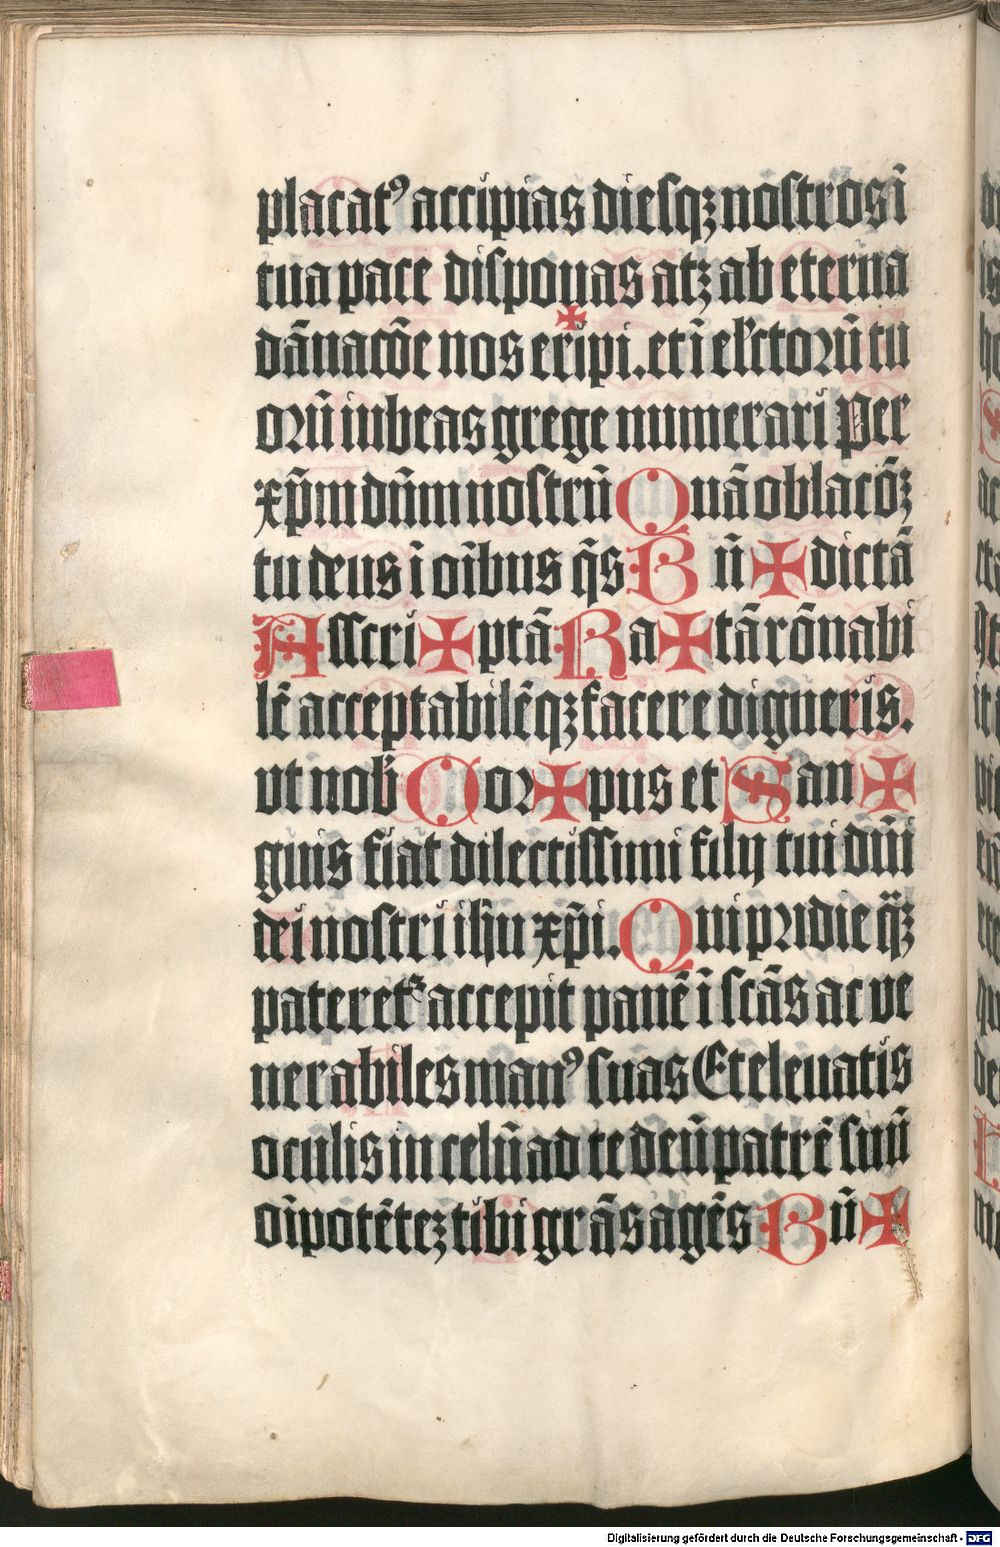 placatꝰ accipias diesqꝫ nostros ī
tua pace disponas atqꝫ ab eterna
dānacōe nos eripi. et ī elc̄torū tu
orū iubeas grege numerari Per
xp̄m dn̄m nostrū Quā oblacōꝫ
tu deus ī oībus q̄s B n̄ ✠ dictā
Asscri ✠ ptā Ra ✠ tā rōnabi
lē acceptabilēqꝫ facere digneris.
vt nob̄ Cor ✠ pus et San ✠
guis fiat dilectissimi filij tui dn̄i
dei nostri ihu xp̄i. Qui pridie q̄ꝫ
pateretᷣ accepit panē ī scās ac ve
nerabiles manꝰ suas Et eleuatis
oculis in celū ad te deū patrē suū
oīpotētēꝫ tibi grās agēs B n̄ ✠
Digitalisierung gefördert durch die Deutsche Forschungsgemeinschaft - DFG